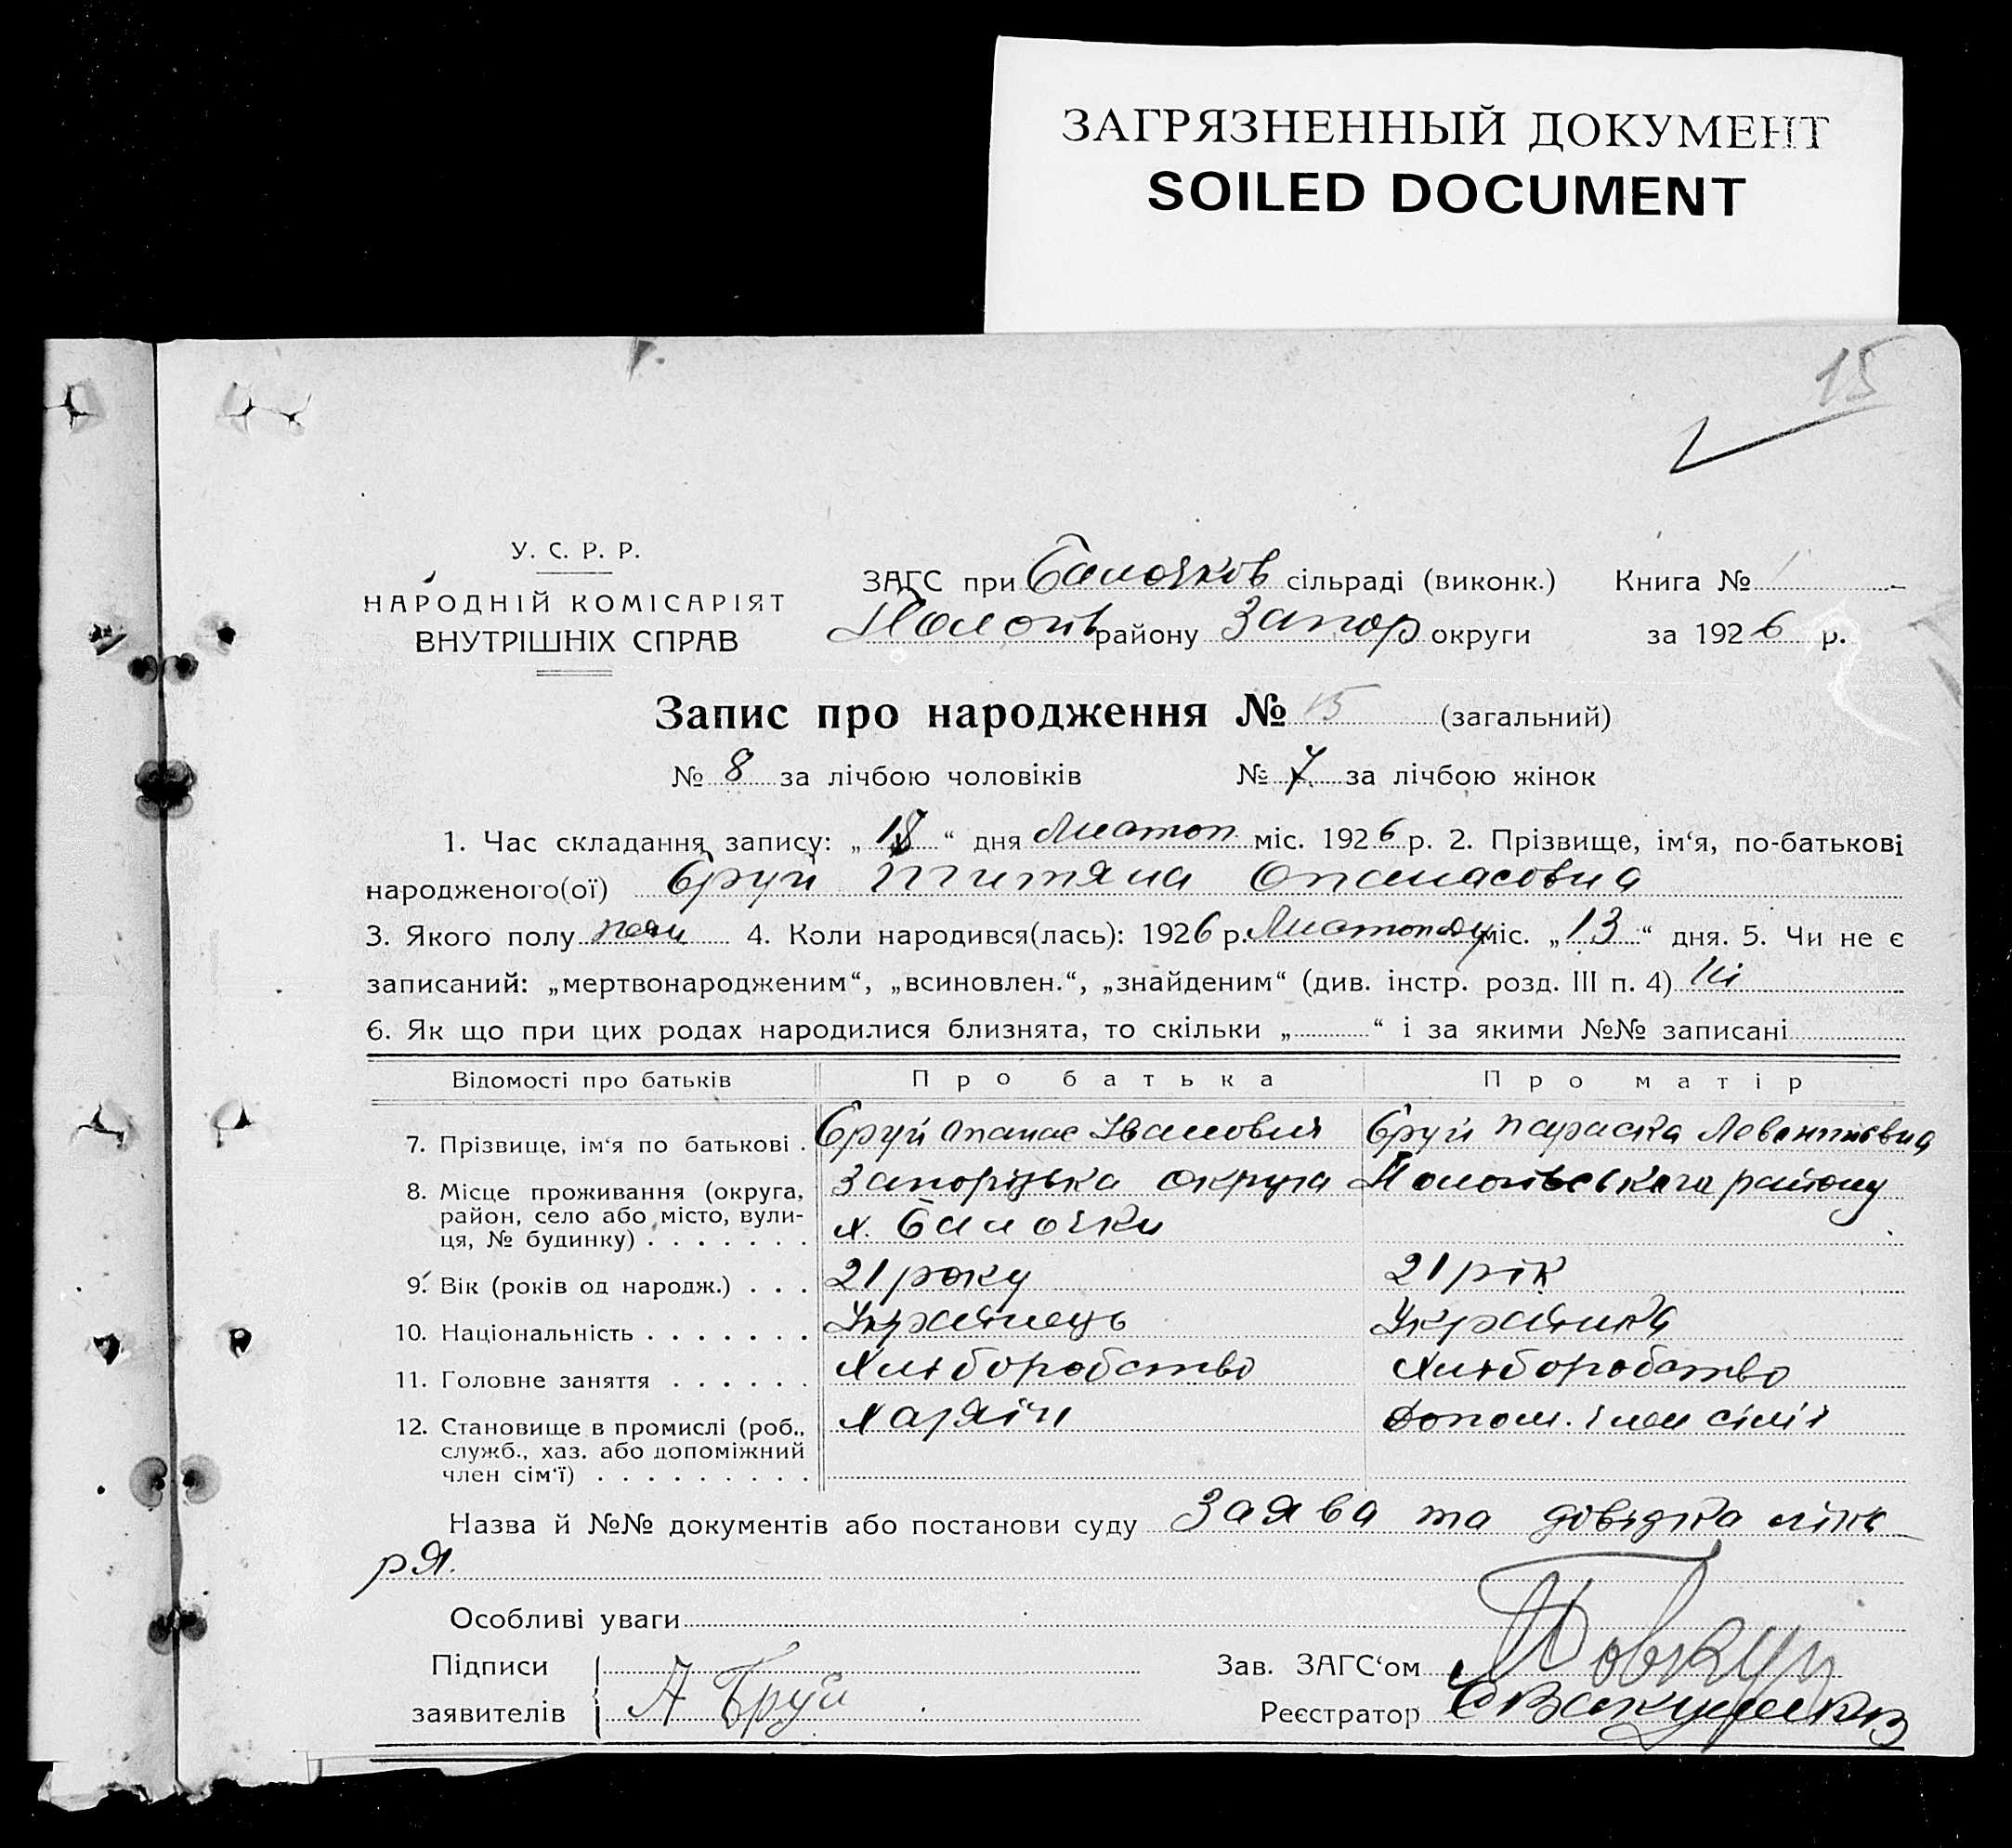 ЗАГРЯЗНЕННЫЙ ДОКУМЕНТ
SOILED DOCUMENT
15
У. С. Р. Р.
НАРОДНІЙ КОМІСАРІЯТ
ВНУТРІШНІХ СПРАВ
ЗАГС при Балочков сільраді (виконк.) Книга № 1
Пологів району Запор округи за 1926 р.
Запис про народження № 15 (загальний)
№ 8 за лічбою чоловіків № 7 за лічбою жінок
1. Час складання запису: „18“ дня Листоп міс. 1926 р. 2. Прізвище, ім‘я, по-батькові
народженого(ої) Бруй Титяна Опанасовна
3. Якого полу 4. Коли народився(лась): 1926 р. Листопаду міс. „13“ дня. 5. Чи не є
записаний: „мертвонародженим“, „всиновлен.“, „знайденим“ (див. інстр. розд. III п. 4) Ні
6. Як що при цих родах народилися близнята, то скільки „ “ і за якими №№ записані
Відомості про батьків Про батька Про матір
7. Прізвище, ім‘я по батькові . Бруй Опанас Іванович Бруй Параска Левентиевна
8. Місце проживання (округа, Запоріцька округа Пологівського району
район, село або місто, вули- х. Балочки
ця, № будинку) . . . . . . .
9. Вік (років од народж.) . . . 21 року 21 рік
10. Національність . . . . . . . Українець Українка
11. Головне заняття . . . . . . Хліборобство Хліборобство
12. Становище в промислі (роб., Хазяїн Допом. член сімії
служб., хаз. або допоміжний
член сім‘ї) . . . . . . . . .
Назва й №№ документів або постанови суду Заява та довідка ліка
ря.
Особливі уваги
Підписи Зав. ЗАГС‘ом Довгун
заявителів А Бруй Реєстратор